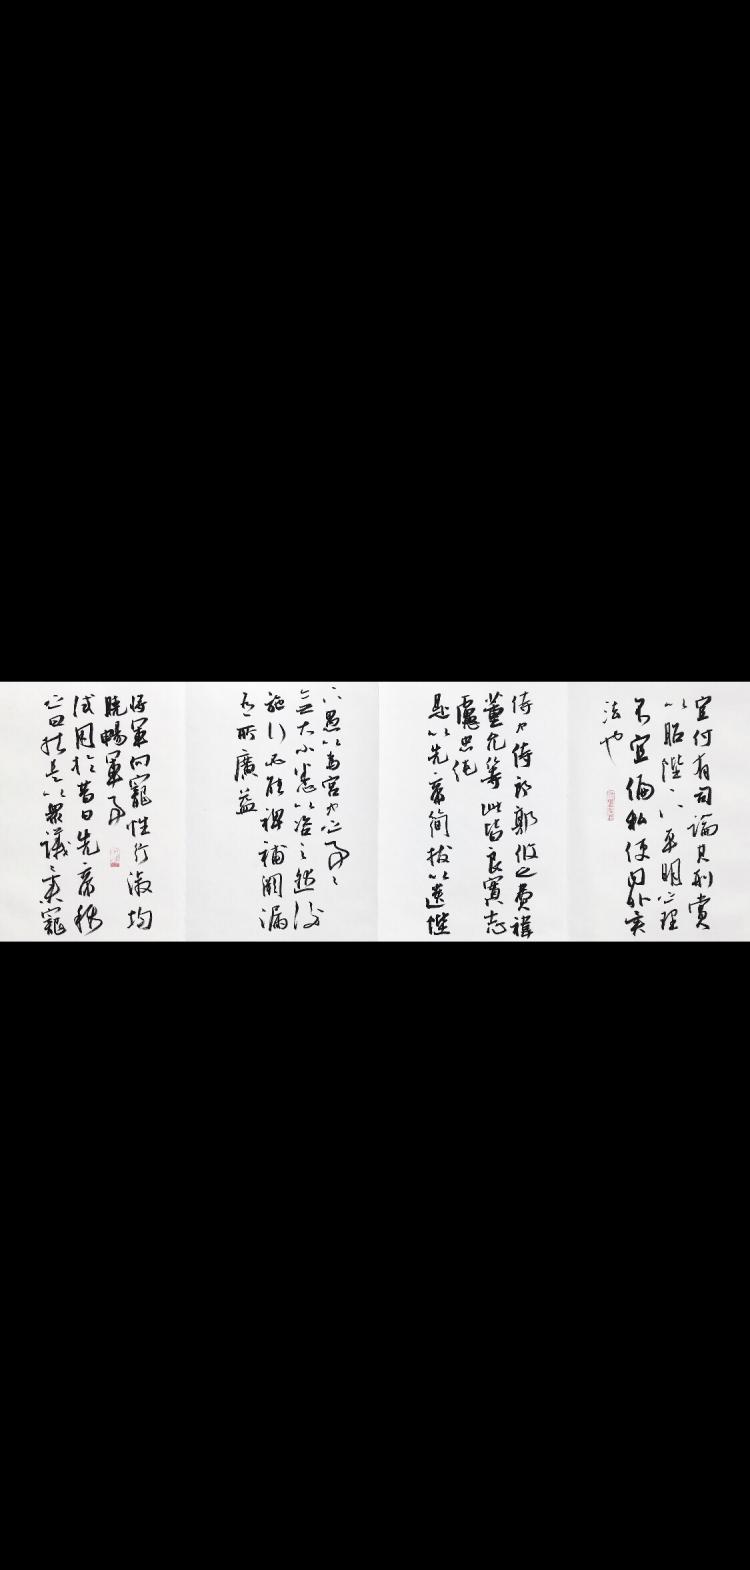 宜付有司論其刑賞
以昭陛下平明之理
不宜偏私使內外異
法也
侍中侍郎郭攸之費禕
董允等此皆良實志
慮忠純
是以先帝簡拔以遺陛
下愚以為宮中之事事
無大小悉以咨之然後
施行必能裨補闕漏
有所廣益
將軍向寵性行淑均
曉暢軍事
試用於昔日先帝稱
之曰能是以眾議舉寵